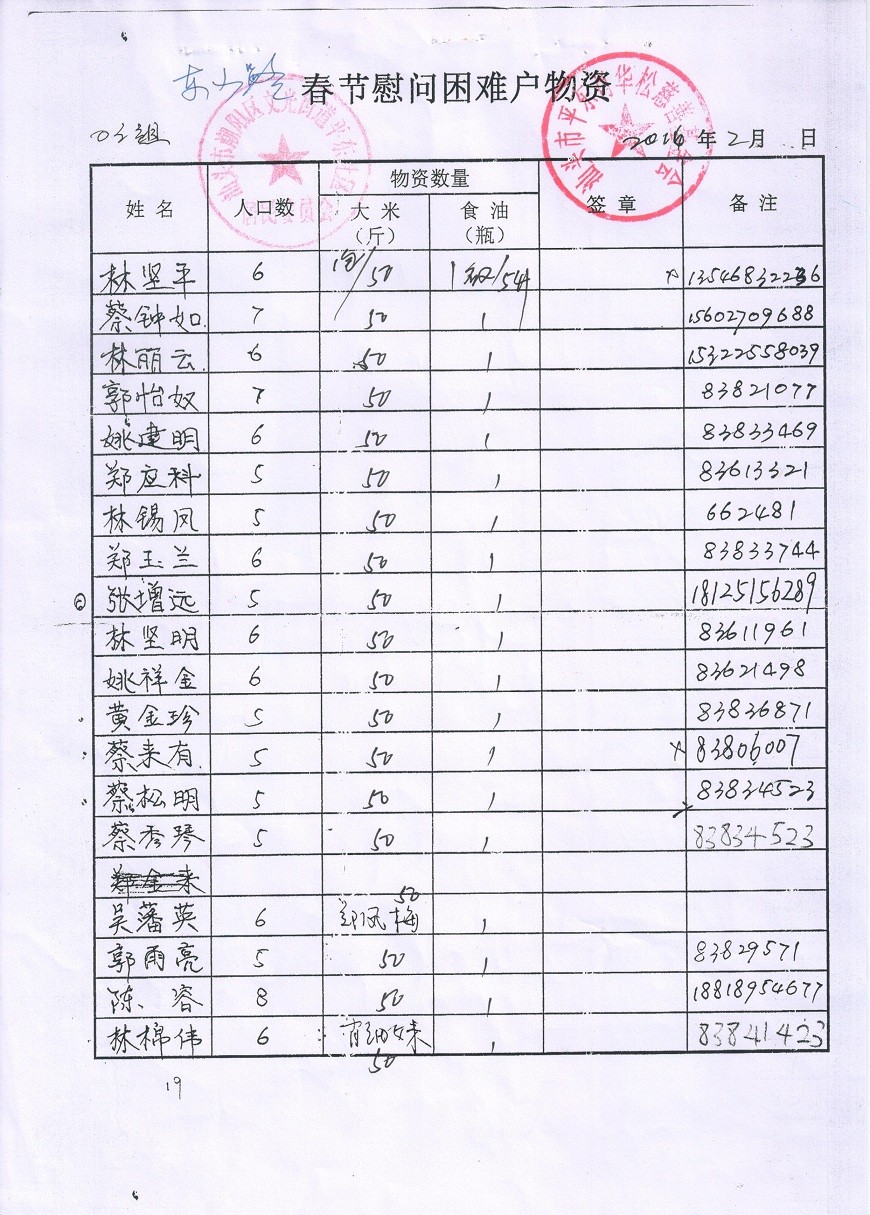 东山 春节慰问困难户物资
2016 年 2月 日
姓名 人口数 物资数量 签章 备注
大米（斤） 食油（瓶）
林坚平 6 1包/50 1 /5升 × 13546832236
蔡钟如 7 50 1 15602709688
林丽云 6 50 1 15322558039
郭怡奴 7 50 1 83821077
姚建明 6 50 1 83833469
郑应科 5 50 1 83613321
林锡凤 5 50 1 662481
郑玉兰 6 50 1 83833744
张增远 5 50 1 18125156289
林坚明 6 50 1 83611961
姚祥金 6 50 1 83621498
黄金珍 5 50 1 83836871
蔡来有 5 50 1 × 83806007
蔡松明 5 50 1 83834523
蔡秀琴 5 50 1 83834523
郑金来
吴藩英 6 郑凤梅 50 1
郭雨亮 5 50 1 83829571
陈容 8 50 1 18818954677
林棉伟 6 50 1 83841423
19